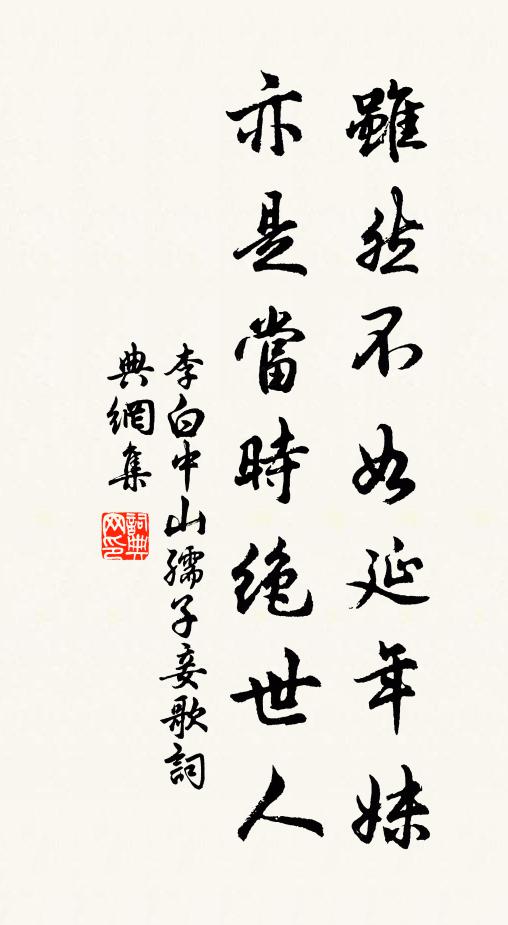 雖然不如延年妹
亦是當時絶世人
李白中山孺子妾歌詞
典網集
詞典網印